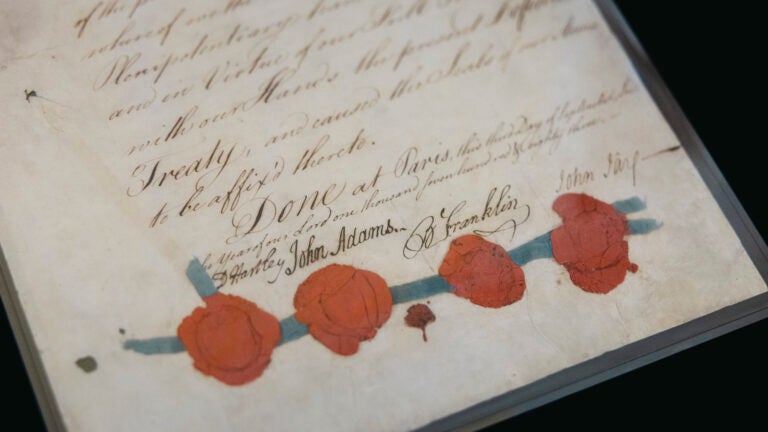 of the
where of we the
Plenipotentiary
and in Virtue of our Full
with our Hands the present Definitive
Treaty, and caused the Seals of our Arms
to be affix'd thereto.
Done at Paris, this third Day of September In
the Year of our Lord one thousand seven hundred & eighty three.—
D Hartley John Adams.. B Franklin John Jay—